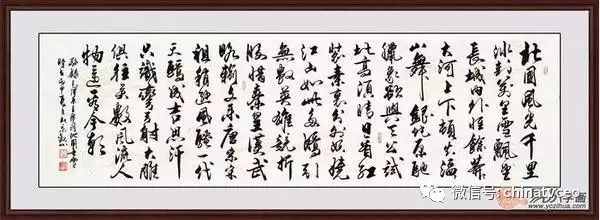 北國風光千里
冰封萬里雪飄望
長城内外惟餘莽
大河上下頓失滔
山舞銀蛇原馳
蠟象欲與天公試
比高須晴日看紅
裝素裹分外妖嬈
江山如此多嬌引
無數英雄競折
腰惜秦皇漢武
略輸文采唐宗宋
祖稍遜風騷一代
天驕成吉思汗
只識彎弓射大雕
俱往矣數風流人
物還看今朝
微信号: chinatyceo
www.yczihua.com